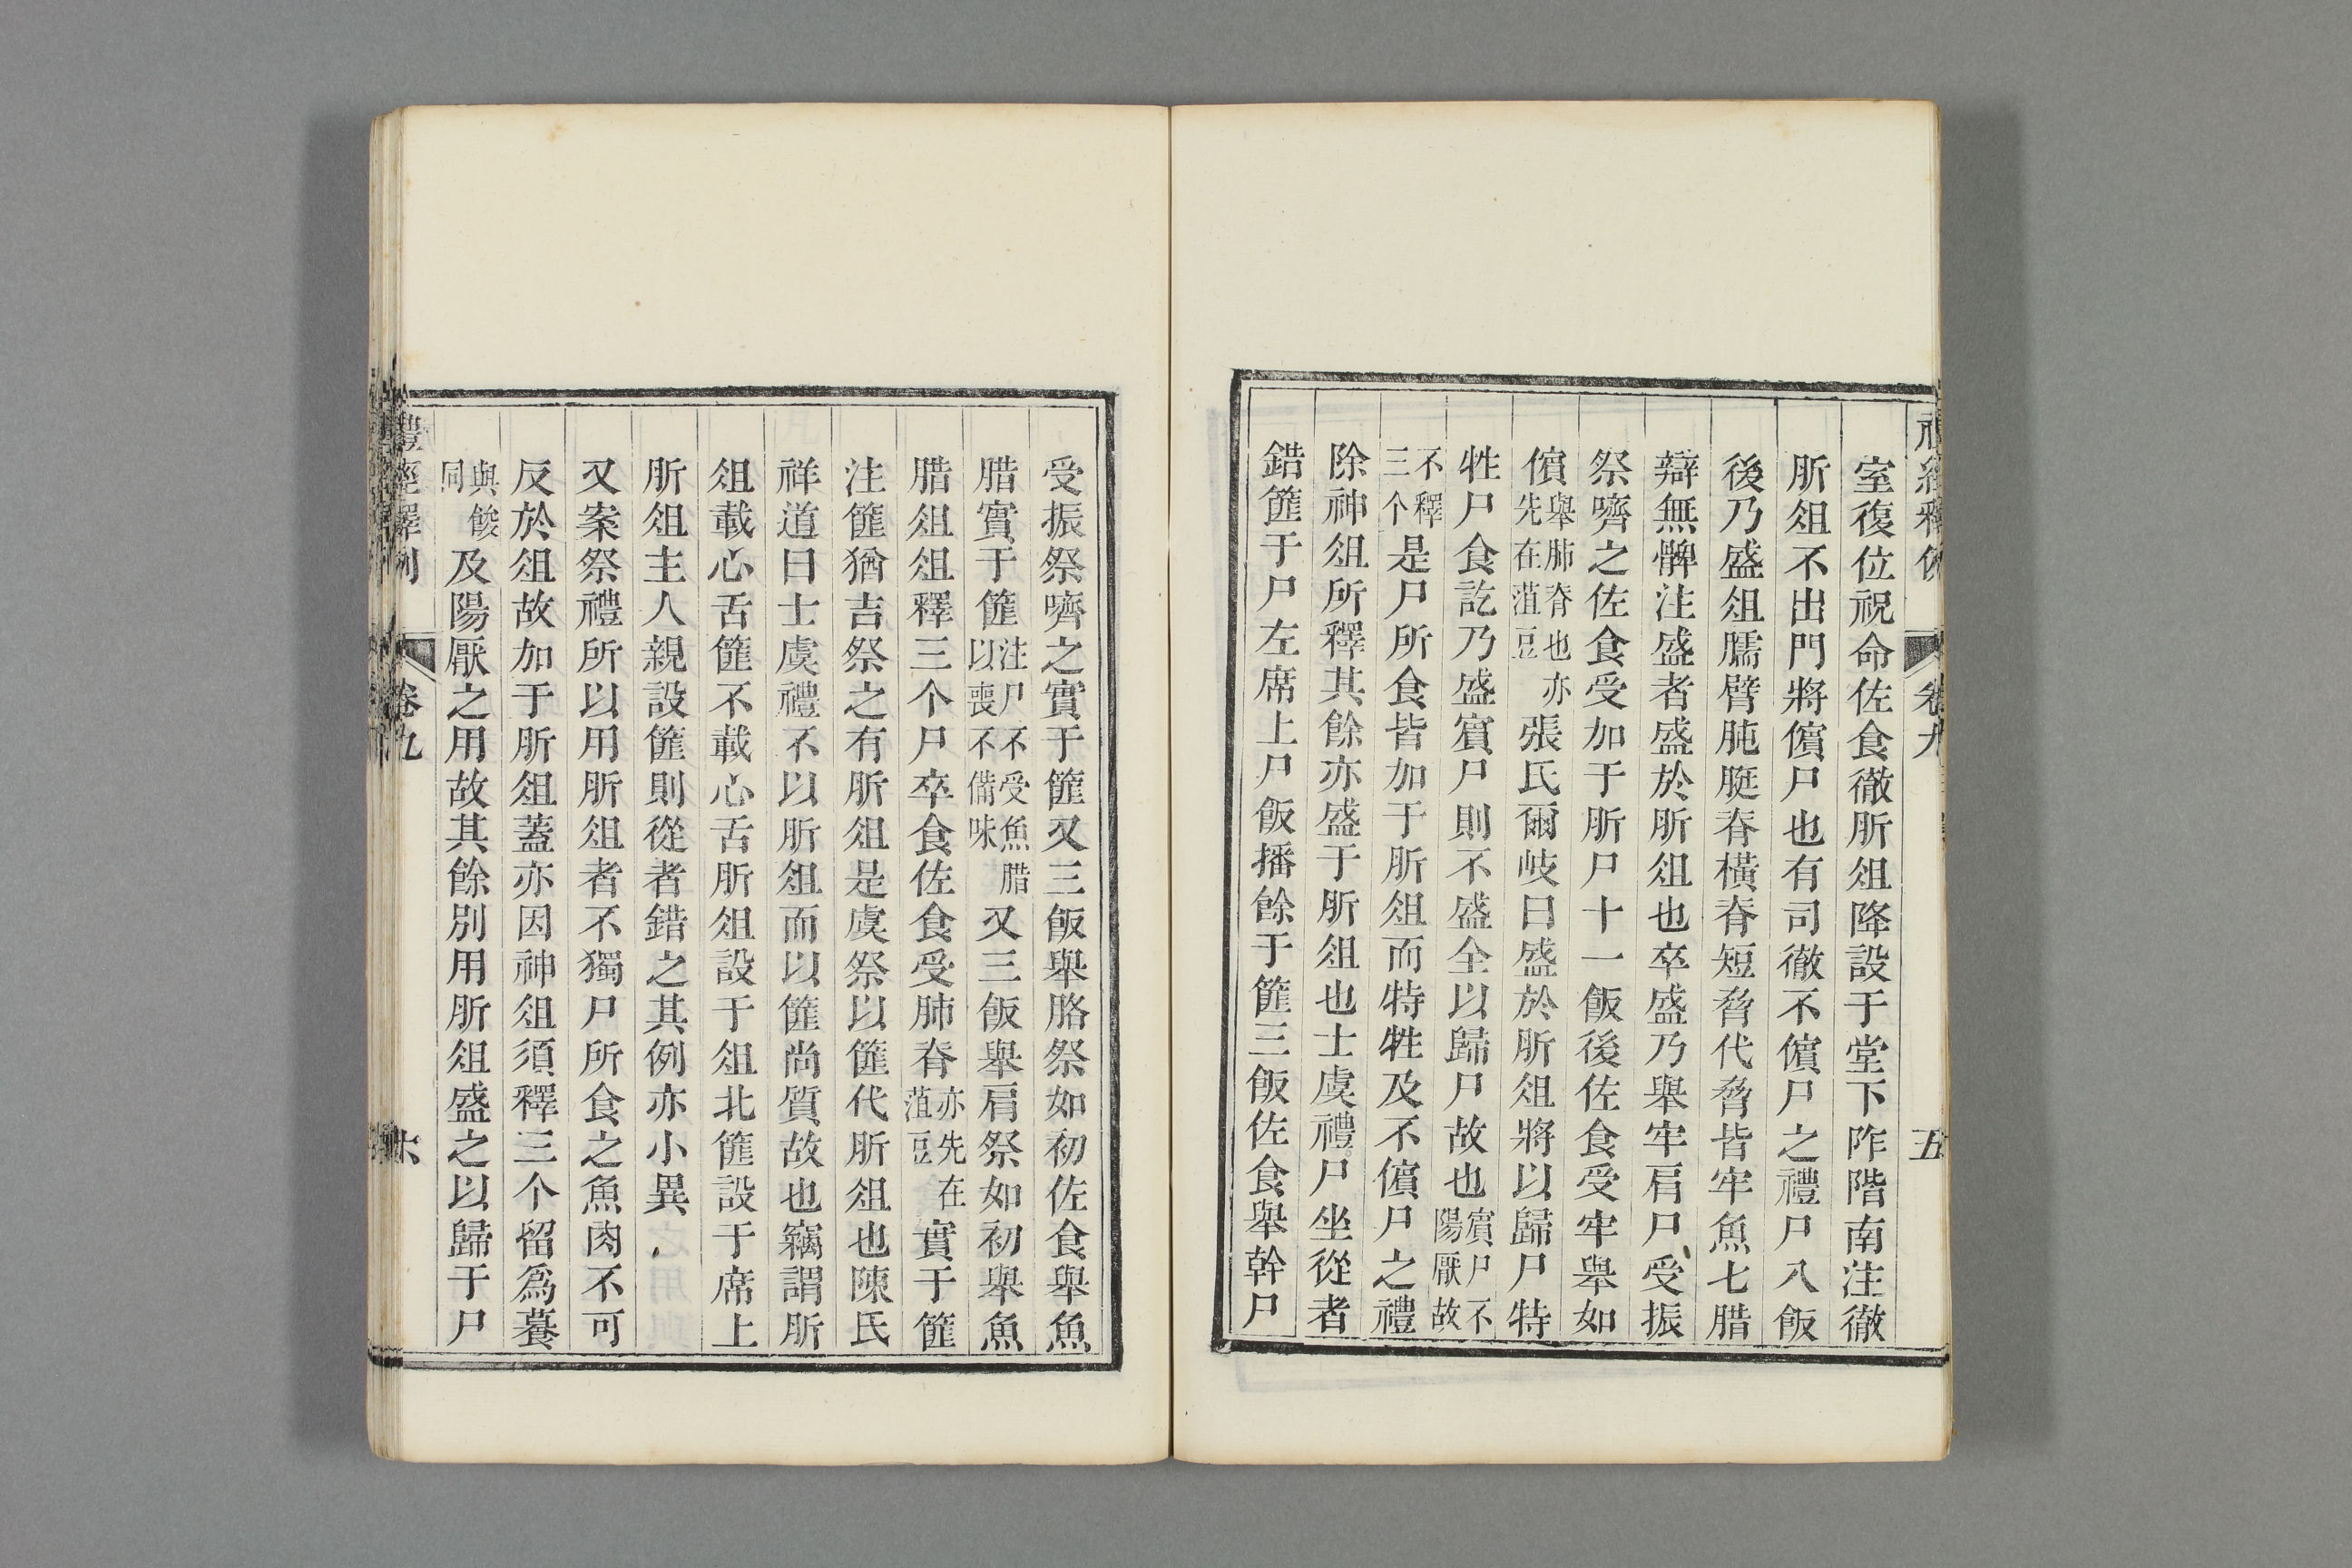 室復位祝命佐食徹肵俎降設于堂下阼階南注徹
肵俎不出門將儐尸也有司徹不儐尸之禮尸八飯
後乃盛俎臑臂肫脡脊橫脊短脅代脅皆牢魚七腊
辯無髀注盛者盛於肵俎也卒盛乃舉牢肩尸受振
祭嚌之佐食受加于肵尸十一飯後佐食受牢舉如
儐舉肺脊也亦先在菹豆張氏爾岐曰盛於肵俎將以歸尸特
牲尸食訖乃盛賓尸則不盛全以歸尸故也賓尸不陽厭故
不釋三个是尸所食皆加于肵俎而特牲及不儐尸之禮
除神俎所釋其餘亦盛于肵俎也士虞禮尸坐從者
錯篚于尸左席上尸飯播餘于篚三飯佐食舉幹尸
受振祭嚌之實于篚又三飯舉胳祭如初佐食舉魚
腊實于篚注尸不受魚腊以喪不備味又三飯舉肩祭如初舉魚
腊俎俎釋三个尸卒食佐食受肺脊亦先在菹豆實于篚
注篚猶吉祭之有肵俎是虞祭以篚代肵俎也陳氏
祥道曰士虞禮不以肵俎而以篚尚質故也竊謂肵
俎載心舌篚不載心舌肵俎設于俎北篚設于席上
肵俎主人親設篚則從者錯之其例亦小異
又案祭禮所以用肵俎者不獨尸所食之魚肉不可
反於俎故加于肵俎蓋亦因神俎須釋三个留爲養
與餕同及陽厭之用故其餘別用肵俎盛之以歸于尸
禮經釋例
卷九
六
卷九
五